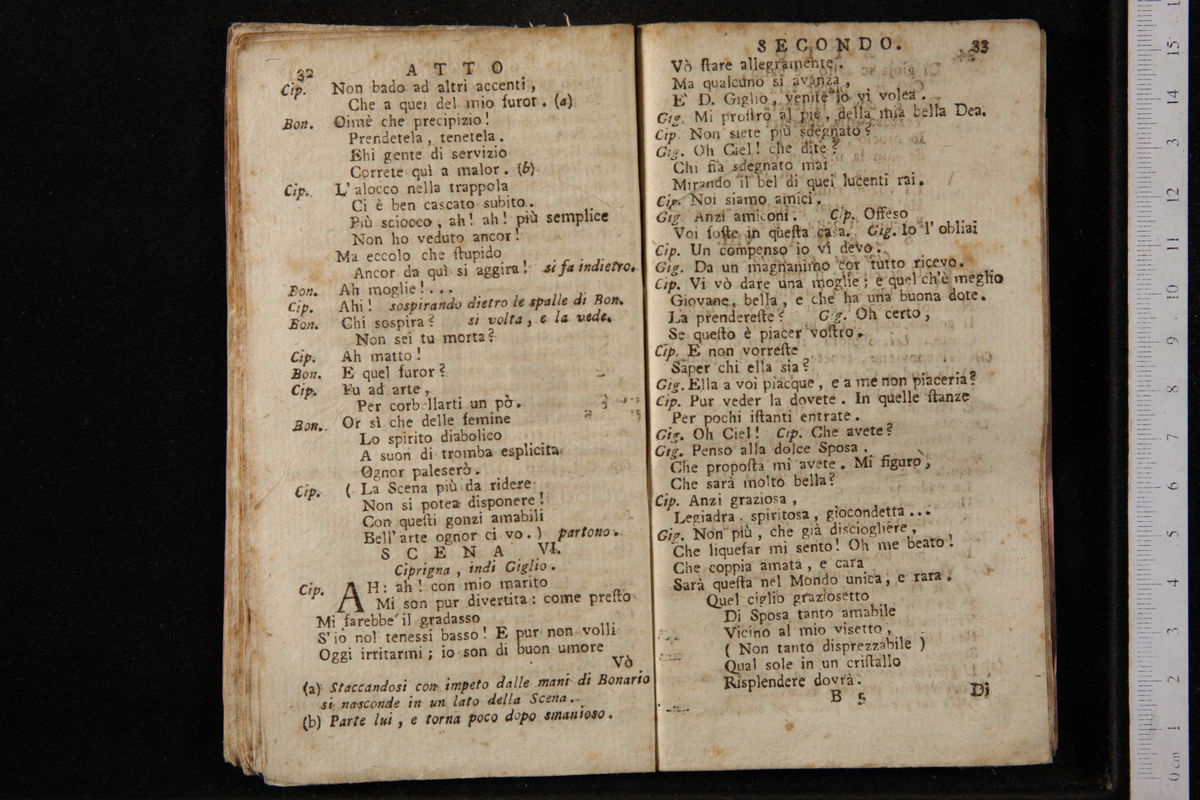 32 ATTO
Cip. Non bado ad altri accenti,
Che a quei del mio furor. (a)
Bon. Oimè che precipizio!
Prendetela, tenetela.
Ehi gente di servizio
Correte quì a malor. (b)
Cip. L'alocco nella trappola
Ci è ben cascato subito.
Più sciocco, ah! ah! più semplice
Non ho veduto ancor!
Ma eccolo che ſtupido
Ancor da quì si aggira! si fa indietro.
Bon. Ah moglie!...
Cip. Ahi! sospirando dietro le spalle di Bon.
Bon. Chi sospira? si volta, e la vede.
Non sei tu morta?
Cip. Ah matto!
Bon. E quel furor?
Cip. Fu ad arte,
Per corbellarti un pò.
Bon. Or sì che delle femine
Lo spirito diabolico
A suon di tromba esplicita
Ognor paleserò.
Cip. (La Scena più da ridere
Non si potea disponere!
Con queſti gonzi amabili
Bell'arte ognor ci vo.) partono.
SCENA VI.
Ciprigna, indi Giglio.
Cip. AH: ah! con mio marito
Mi son pur divertita: come preſto
Mi farebbe il gradasso
S'io nol tenessi basso! E pur non volli
Oggi irritarmi; io son di buon umore
Vò
(a) Staccandosi con impeto dalle mani di Bonario
si nasconde in un lato della Scena.
(b) Parte lui, e torna poco dopo smanioso.
SECONDO. 33
Vò ſtare allegramente.
Ma qualcuno si avanza,
E' D. Giglio, venite io vi volea.
Gig. Mi proſtro al piè, della mia bella Dea.
Cip. Non siete più sdegnato?
Gig. Oh Ciel! che dite?
Chi fia sdegnato mai
Mirando il bel di quei lucenti rai.
Cip. Noi siamo amici.
Gig. Anzi amiconi. Cip. Offeso
Voi foſte in queſta casa. Gig. Io l'obliai
Cip. Un compenso io vi devo.
Gig. Da un magnanimo cor tutto ricevo.
Cip. Vi vò dare una moglie; e quel ch'è meglio
Giovane, bella, e che ha una buona dote.
La prendereſte? Gig. Oh certo,
Se queſto è piacer voſtro.
Cip. E non vorreſte
Saper chi ella sia?
Gig. Ella a voi piacque, e a me non piaceria?
Cip. Pur veder la dovete. In quelle ſtanze
Per pochi iſtanti entrate.
Gig. Oh Ciel! Cip. Che avete?
Gig. Penso alla dolce Sposa,
Che propoſta mi avete. Mi figuro,
Che sarà molto bella?
Cip. Anzi graziosa,
Legiadra, spiritosa, giocondetta...
Gig. Non più, che già disciogliere,
Che liquefar mi sento! Oh me beato!
Che coppia amata, e cara
Sarà queſta nel Mondo unica, e rara.
Quel ciglio graziosetto
Di Sposa tanto amabile
Vicino al mio visetto,
(Non tanto disprezzabile)
Qual sole in un criſtallo
Risplendere dovrà.
B 5 Di
15
14
13
12
11
10
9
8
7
6
5
4
3
2
1
0 cm